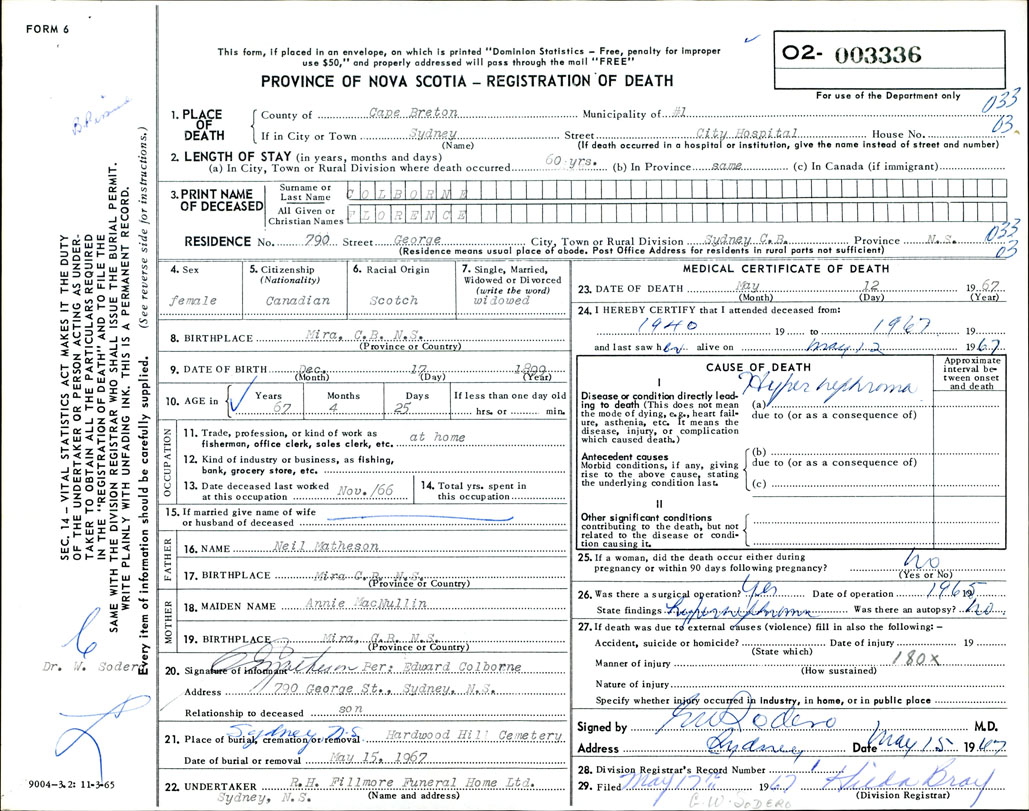 FORM 6
This form, if placed in an envelope, on which is printed "Dominion Statistics – Free, penalty for improper
use $50," and properly addressed will pass through the mail "FREE"
PROVINCE OF NOVA SCOTIA – REGISTRATION OF DEATH
02- 003336
For use of the Department only
033
03
1. PLACE OF DEATH
County of Cape Breton Municipality of #1
If in City or Town Sydney Street City Hospital House No.
(Name) (If death occurred in a hospital or institution, give the name instead of street and number)
2. LENGTH OF STAY (in years, months and days)
(a) In City, Town or Rural Division where death occurred 60 yrs. (b) In Province same (c) In Canada (if immigrant)
3. PRINT NAME OF DECEASED
Surname or Last Name COLBORNE
All Given or Christian Names FLORENCE
RESIDENCE No. 790 Street George City, Town or Rural Division Sydney C.B. Province N.S.
033
03
(Residence means usual place of abode. Post Office Address for residents in rural parts not sufficient)
4. Sex
female
5. Citizenship
(Nationality)
Canadian
6. Racial Origin
Scotch
7. Single, Married,
Widowed or Divorced
(write the word)
widowed
8. BIRTHPLACE Mira, C.B. N.S.
(Province or Country)
9. DATE OF BIRTH Dec. 17 1899
(Month) (Day) (Year)
10. AGE in
Years
67
Months
4
Days
25
If less than one day old
hrs. or min.
OCCUPATION
11. Trade, profession, or kind of work as
fisherman, office clerk, sales clerk, etc. at home
12. Kind of industry or business, as fishing,
bank, grocery store, etc.
13. Date deceased last worked
at this occupation Nov./66
14. Total yrs. spent in
this occupation
15. If married give name of wife
or husband of deceased
FATHER
16. NAME Neil Matheson
17. BIRTHPLACE Mira C.B. N.S.
(Province or Country)
MOTHER
18. MAIDEN NAME Annie MacMullin
19. BIRTHPLACE Mira, C.B. N.S.
(Province or Country)
20. Signature of informant Per; Edward Colborne
Address 790 George St., Sydney, N.S.
Relationship to deceased son
21. Place of burial, cremation or removal Sydney N.S. Hardwood Hill Cemetery
Date of burial or removal May 15, 1967
22. UNDERTAKER R.H. Fillmore Funeral Home Ltd.
Sydney, N.S. (Name and address)
MEDICAL CERTIFICATE OF DEATH
23. DATE OF DEATH May 12 1967
(Month) (Day) (Year)
24. I HEREBY CERTIFY that I attended deceased from:
1940 19 to 1967 19
and last saw her alive on May 12 1967
CAUSE OF DEATH
Approximate
interval be-
tween onset
and death
I
Disease or condition directly lead-
ing to death (This does not mean
the mode of dying, e.g., heart fail-
ure, asthenia, etc. It means the
disease, injury, or complication
which caused death.)
(a) Hypernephroma
due to (or as a consequence of)
Antecedent causes
Morbid conditions, if any, giving
rise to the above cause, stating
the underlying condition last.
(b)
due to (or as a consequence of)
(c)
II
Other significant conditions
contributing to the death, but not
related to the disease or condi-
tion causing it.
25. If a woman, did the death occur either during
pregnancy or within 90 days following pregnancy? no
(Yes or No)
26. Was there a surgical operation? Yes Date of operation 1965 19
State findings hypernephroma Was there an autopsy? no
27. If death was due to external causes (violence) fill in also the following: –
Accident, suicide or homicide? Date of injury 19
(State which)
Manner of injury 180X
(How sustained)
Nature of injury
Specify whether injury occurred in industry, in home, or in public place
Signed by GW Sodero M.D.
Address Sydney Date May 15 1967
28. Division Registrar's Record Number
29. Filed May 17 1967 Hilda Bray
(Division Registrar)
G.W. SODERO
SEC. 14 – VITAL STATISTICS ACT MAKES IT THE DUTY
OF THE UNDERTAKER OR PERSON ACTING AS UNDER-
TAKER TO OBTAIN ALL THE PARTICULARS REQUIRED
IN THE "REGISTRATION OF DEATH" AND TO FILE THE
SAME WITH THE DIVISION REGISTRAR WHO SHALL ISSUE THE BURIAL PERMIT.
WRITE PLAINLY WITH UNFADING INK. THIS IS A PERMANENT RECORD.
Every item of information should be carefully supplied. (See reverse side for instructions.)
Dr. W. Soder
9004-3.2: 11-3-65